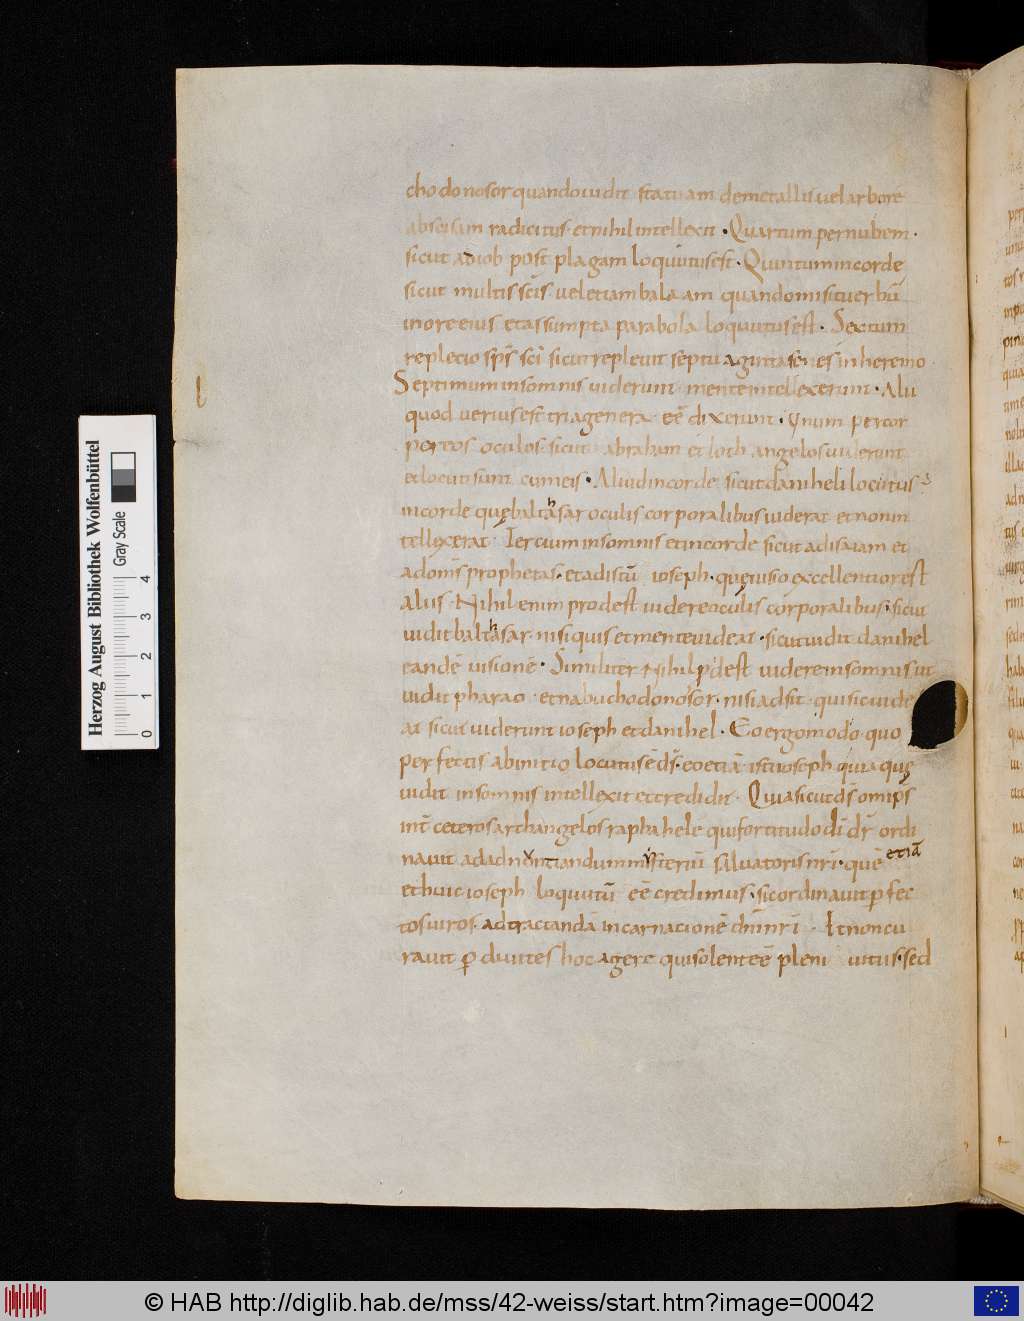 chodonosor quando uidit statuam demetallis uel arbore
abscisam radicitus · et nihil intellexit · Quartum per nubem ·
sicut ad iob post plagam loquutus est · Quintum incorde
sicut multis scīs uel etiam balaam quando misit uerbū
in ore eius et assumpta parabola loquutus est · Sextum
repletio sp̄s sc̄i sicut repleuit septuaginta senes in heremo ·
Septimum insomnis uiderunt mente intellexerunt · Alii
quod uerius est tria genera eē dixerunt · Unum per cor
poreos oculos · sicut abraham et loth angelos uiderunt
et locuti sunt cum eis · Aliud incorde sicut daniheli locutus ÷
incorde quę balthasar oculis corporalibus uiderat et non in
tellexerat · Tercium insomnis et incorde sicut ad isaiam et
ad omīs prophetas · et ad istū ioseph · quę uisio excellentior est
aliis · Nihil enim prodest uidere oculis corporalibus · sicut
uidit balthasar · nisi quis et mente uideat · sicut uidit danihel
eandē uisionē · Similiter Nihil p̄dest uidere insomnis ut
uidit pharao · et nabuchodonosor · nisi adsit · qui sic uide
at sicut uiderunt ioseph et danihel · Eo ergo modo · quo
perfectis ab initio locutus ē ds̄ · eo etiā isti ioseph quia quę
uidit insomnis intellexit et credidit · Quia sicut ds̄ omip̄s
int̄ ceteros archangelos raphahele qui fortitudo dī dr̄ ordi
nauit ad adnuntiandum mysteriū saluatoris nr̄i · quē etiā
et huic ioseph loquutū eē credimus · sic ordinauit p̄fec
tos uiros · ad tractandā incarnacionē dn̄i nr̄i · Et non cu
rauit p̄ diuites hoc agere qui solent eē pleni uitiis · sed
Herzog August Bibliothek Wolfenbüttel
Gray Scale
0 1 2 3 4
© HAB http://diglib.hab.de/mss/42-weiss/start.htm?image=00042